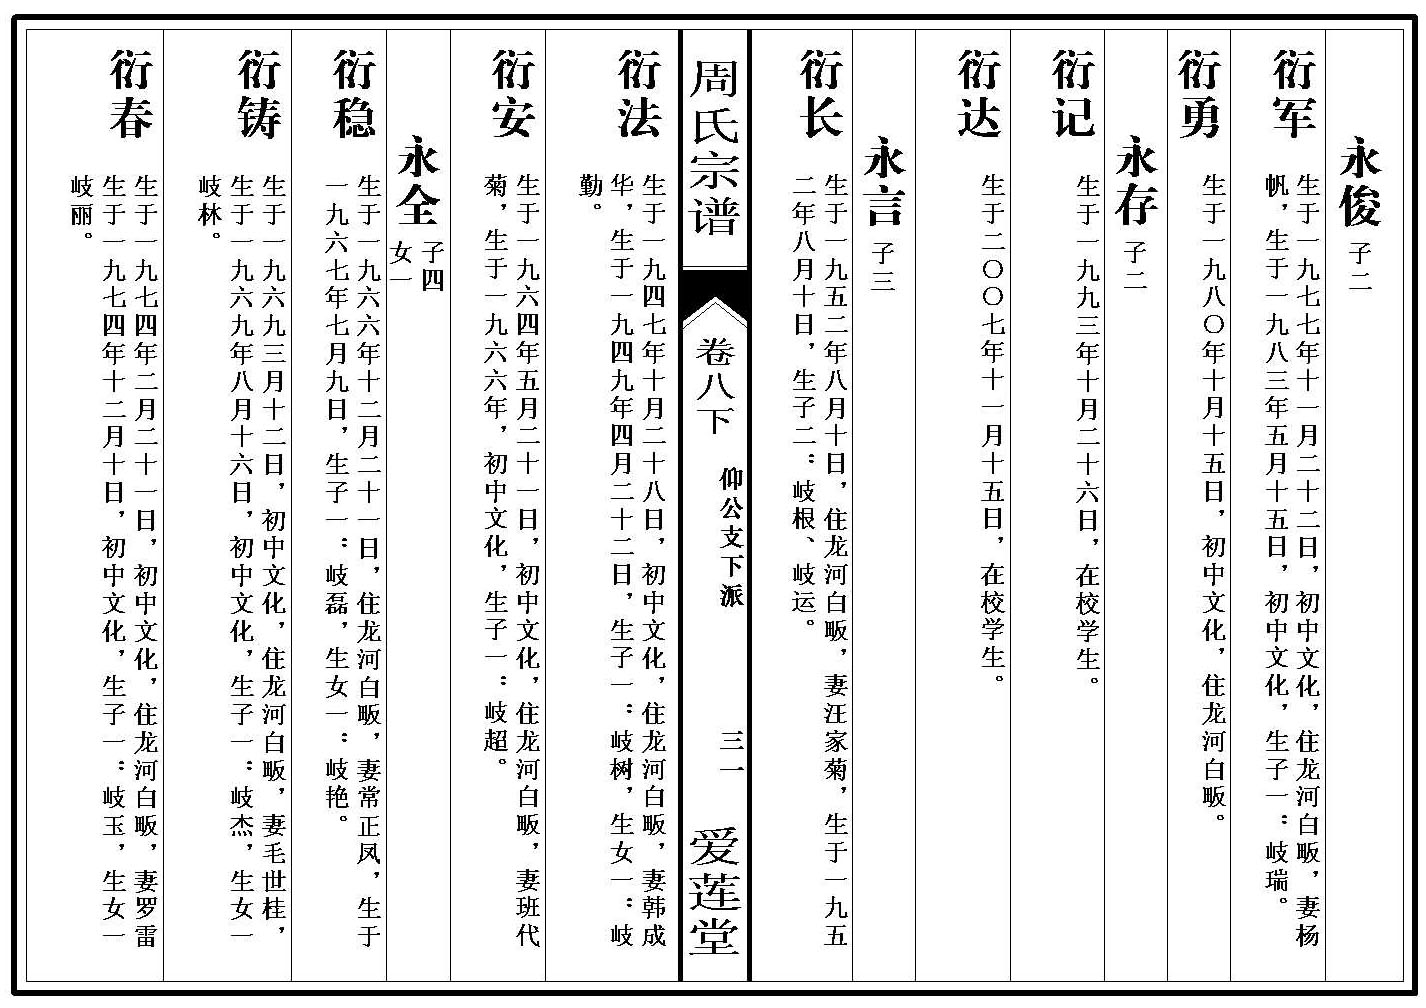 永俊 子二
衍军 生于一九七七年十一月二十二日，初中文化，住龙河白畈，妻杨
帆，生于一九八三年五月十五日，初中文化，生子一：岐瑞。
衍勇 生于一九八〇年十月十五日，初中文化，住龙河白畈。
永存 子二
衍记 生于一九九三年十月二十六日，在校学生。
衍达 生于二〇〇七年十一月十五日，在校学生。
永言 子三
衍长 生于一九五二年八月十日，住龙河白畈，妻汪家菊，生于一九五
二年八月十日，生子二：岐根、岐运。
周氏宗谱 卷八下 仰公支下派 三一 爱莲堂
衍法 生于一九四七年十月二十八日，初中文化，住龙河白畈，妻韩成
华，生于一九四九年四月二十二日，生子一：岐树，生女一：岐
勤。
衍安 生于一九六四年五月二十一日，初中文化，住龙河白畈，妻班代
菊，生于一九六六年，初中文化，生子一：岐超。
永全 子四
女一
衍稳 生于一九六六年十二月二十一日，住龙河白畈，妻常正凤，生于
一九六七年七月九日，生子一：岐磊，生女一：岐艳。
衍铸 生于一九六九三月十二日，初中文化，住龙河白畈，妻毛世桂，
生于一九六九年八月十六日，初中文化，生子一：岐杰，生女一
岐林。
衍春 生于一九七四年二月二十一日，初中文化，住龙河白畈，妻罗雷
生于一九七四年十二月十日，初中文化，生子一：岐玉，生女一
岐丽。